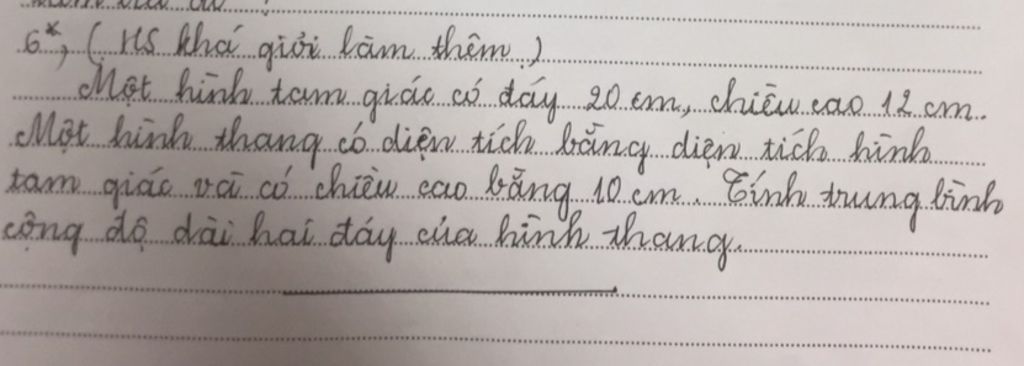 6*, ( HS khá giỏi làm thêm.)
Một hình tam giác có đáy 20 cm, chiều cao 12 cm.
Một hình thang có diện tích bằng diện tích hình
tam giác và có chiều cao bằng 10 cm. Tính trung bình
cộng độ dài hai đáy của hình thang.